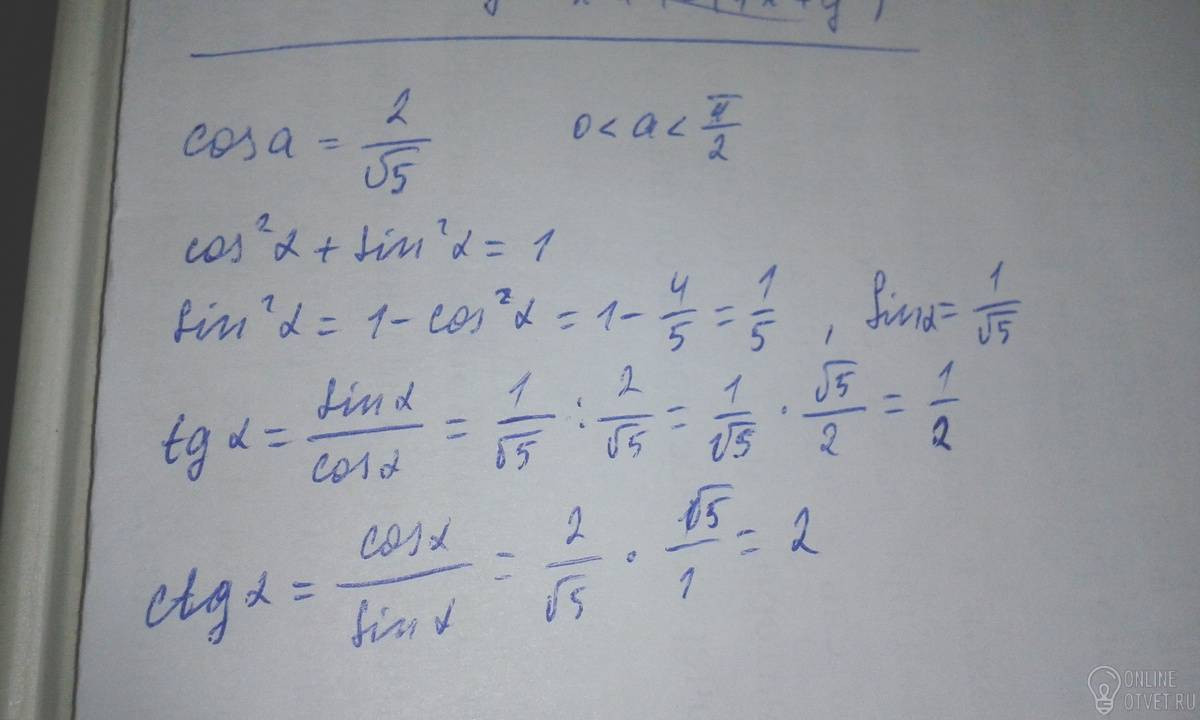 cos a = 2/√5      0 < a < π/2
cos²α + sin²α = 1
sin²α = 1 - cos²α = 1 - 4/5 = 1/5 , sinα = 1/√5
tg α = sinα/cosα = 1/√5 : 2/√5 = 1/√5 · √5/2 = 1/2
ctg α = cosα/sinα = 2/√5 · √5/1 = 2
ONLINE
OTVET.RU